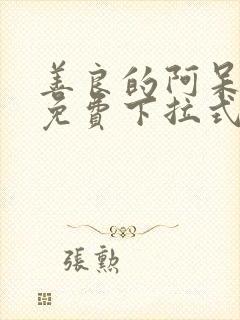 善良的阿呆
免費下拉式
張勲